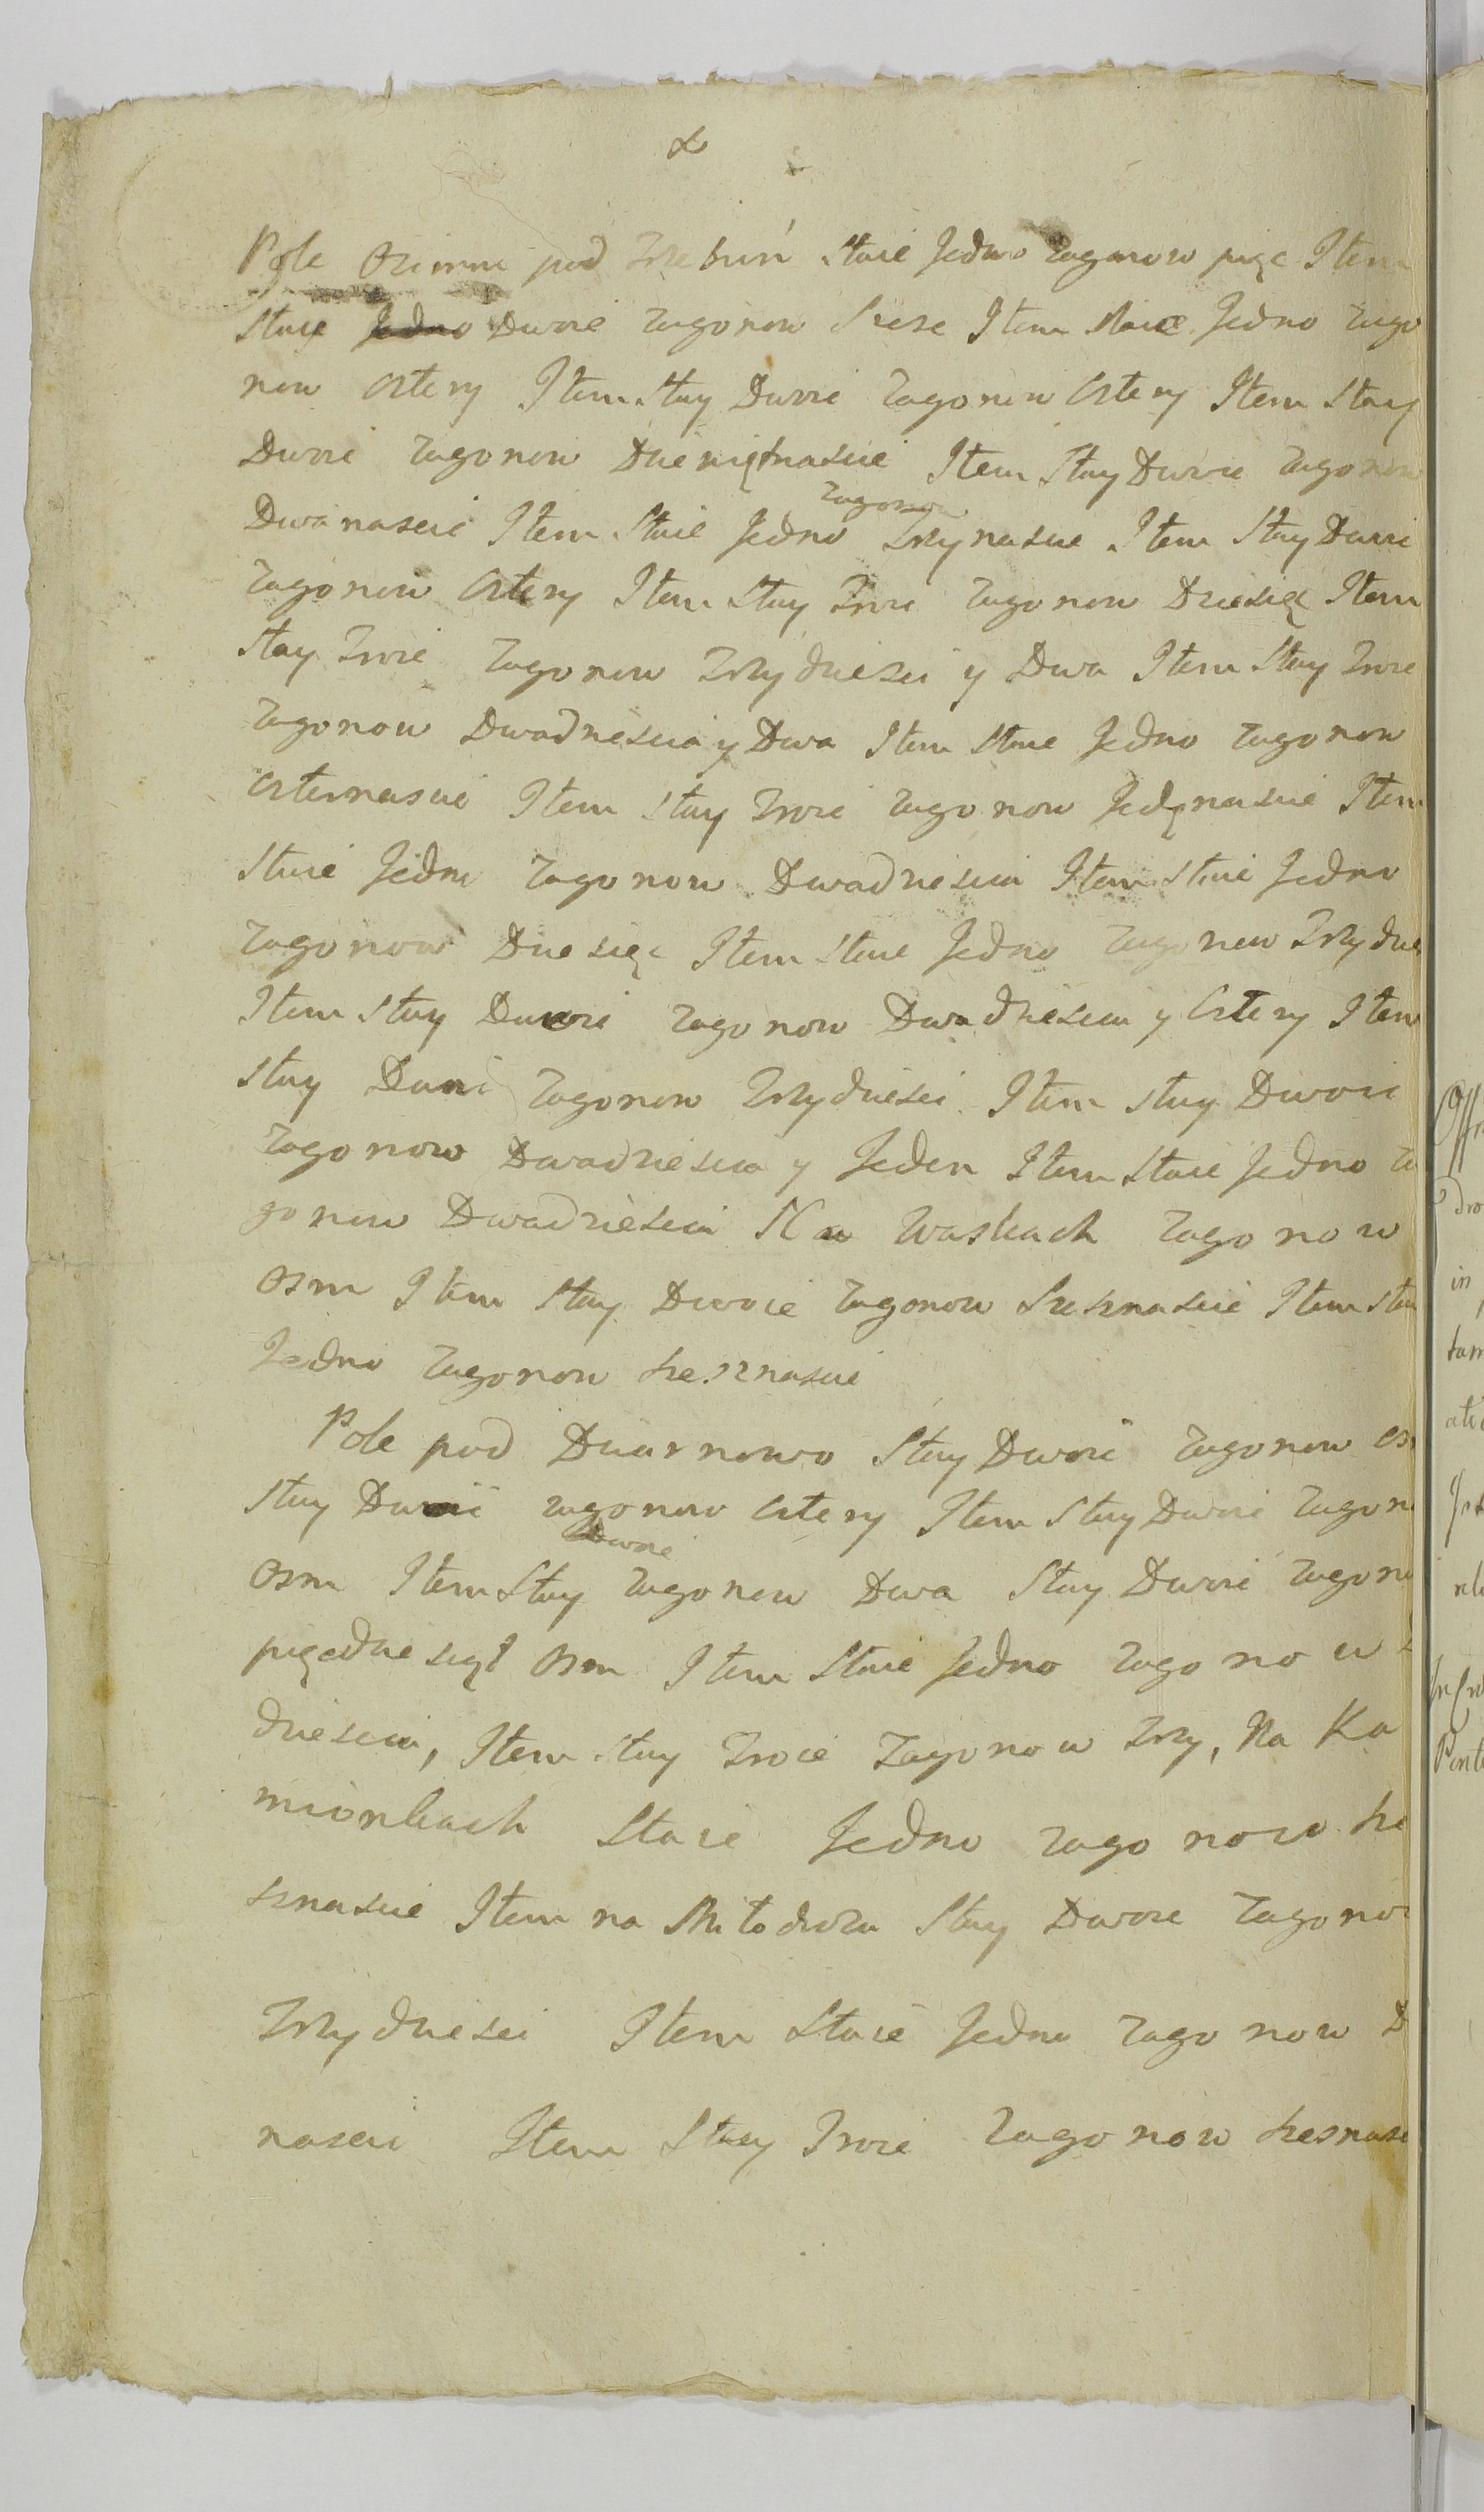 Pole Ozimne pod Trzebuń Staie Jedno zagonow pięc Item
Staie Jedno Dwoie zagonow Szesc Item staie Jedno zago
now cztery Item Stay Dwoie zagonow Cztery Item Stay
Dwoie zagonow Dziewiętnascie Item Stay Dwoie zagonow
zagonow
Dwanascie Item Staie Jedno Trzynascie Item Stay Dwoie
zagonow Cztery Item Stay Troie zagonow Dziesięc Item
Stay Troie zagonow Trzydziesci y Dwa Item Stay Troie
zagonow Dwadziescia y Dwa Item Staie Jedno zagonow
czternascie Item Stay Troie zagonow Jedęnascie Item
Staie Jedno zagonow Dwadziescia Item Staie Jedno
zagonow Dziesięc Item Staie Jedno zagonow Trzydzie
Item Stay Dwoie zagonow Dwadziescia y Cztery Item
Stay Dwoie zagonow Trzydziesci Item stay Dwoie
zagonow Dwadziescia y Jeden Item Staie Jedno za
gonow Dwadziescia Na Waskach zagonow
osm Item Stay Dwoie zagonow Szesznascie Item Sta
Jedno zagonow szesznascie
Pole pod Dwornowo Stay Dwoie zagonow os
Stay Dwoie zagonow cztery Item Stay Dwoie zagon
Dwoie
osm Item Stay zagonow Dwa Stay Dwoie zagono
pięcdziesiąt osm Item Staie Jedno zagonow
dziescia, Item stay Troie zagonow Trzy, Na Ka
mionkach Staie Jedno zagonow sze
sznascie Item na Stay Dwoie zagonow
Trzydziesci Item Staie Jedno zagonow D
nascie Item Stay Troie zagonow szesnasc
Offi
dro
in
tam
Pont